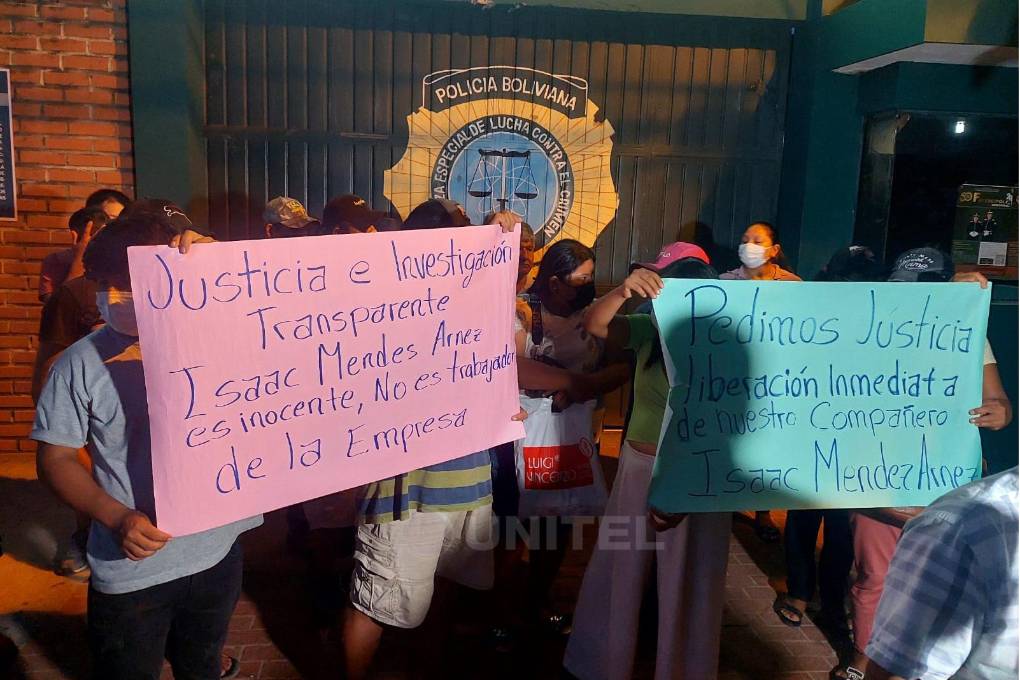 POLICIA BOLIVIANA
ZA ESPECIAL DE LUCHA CONTRA EL CRIMEN
Justicia e Investigación
Transparente
Isaac Mendes Arnez
es inocente, No es trabajador
de la Empresa
Pedimos Jústicia
liberación Inmediata
de nuestro Compañero
Isaac Mendez Arnez
LUIGI
VINCENZO
UNITEL